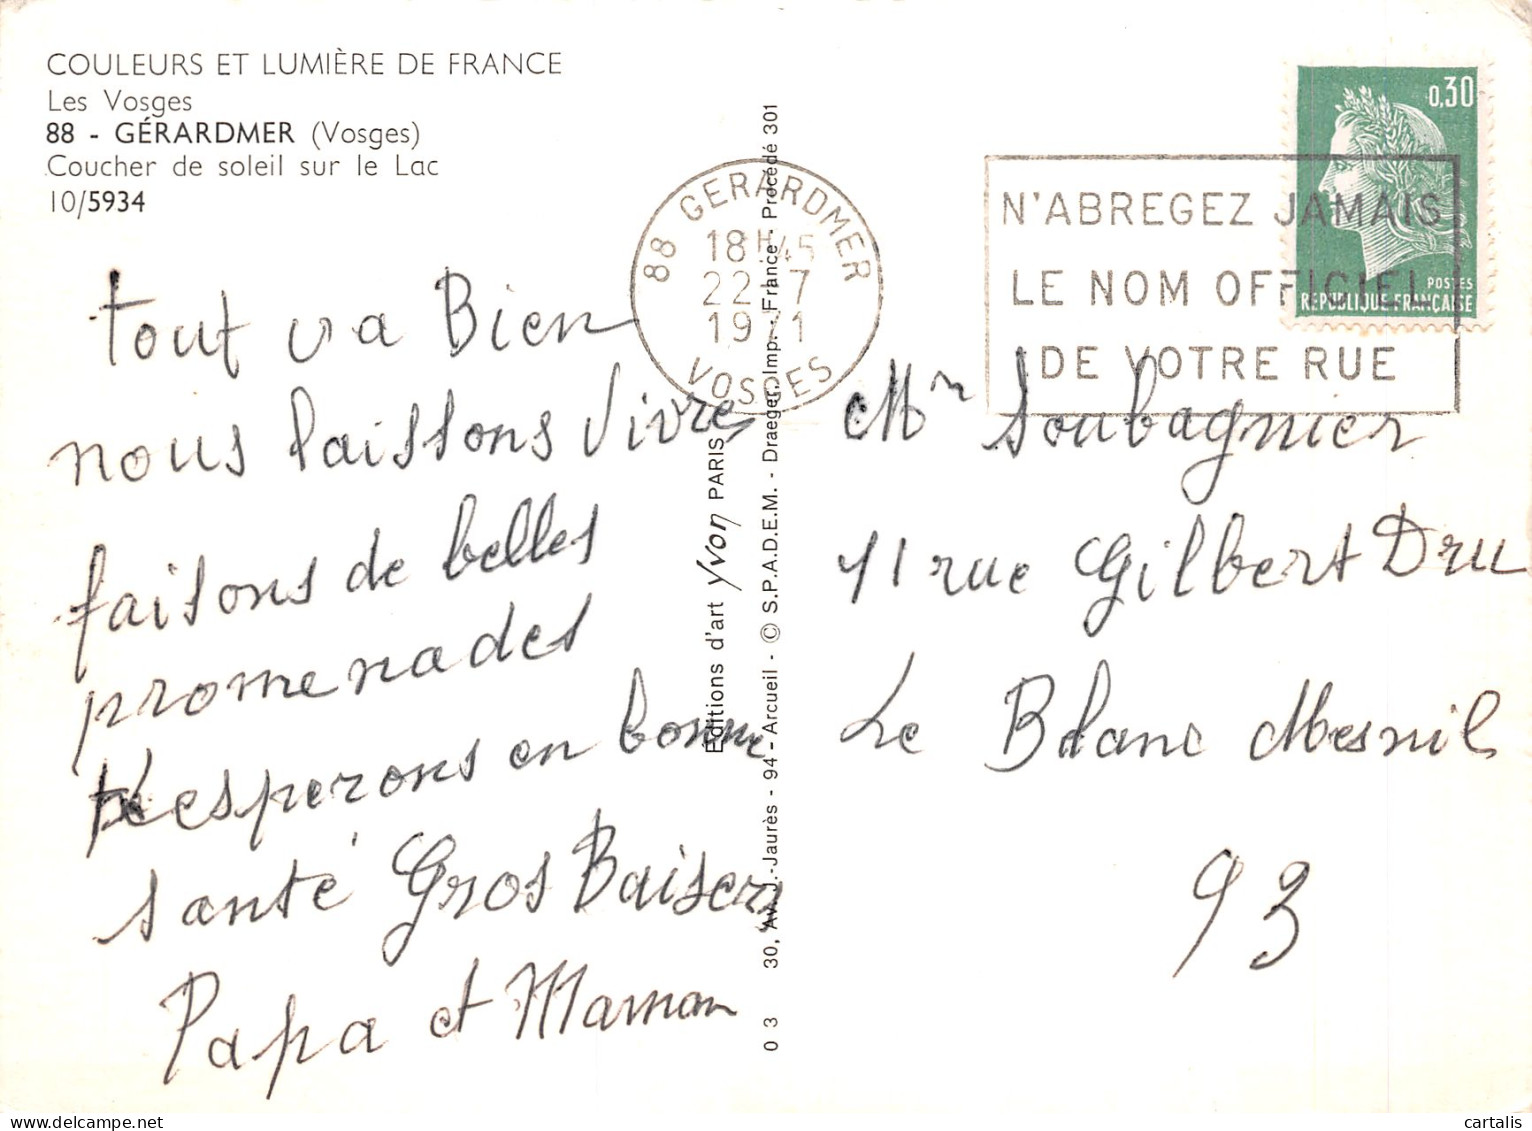 COULEURS ET LUMIÈRE DE FRANCE
Les Vosges
88 - GÉRARDMER (Vosges)
Coucher de soleil sur le Lac
10/5934
tout va Bien
nous laissons vivre
faisons de belles
promenades
esperons en bonne
santé Gros Baisers
Papa et Maman
Éditions d'art Yvon PARIS
0 3 30, Av. J.-Jaurès - 94 - Arcueil - © S.P.A.D.E.M. - Draeger, Imp. - France - Procédé 301
88 GERARDMER
18H45
22-7
1971
VOSGES
N'ABREGEZ JAMAIS
LE NOM OFFICIEL
DE VOTRE RUE
0,30
POSTES
RÉPUBLIQUE FRANÇAISE
Mr Soubagnier
11 rue Gilbert Dru
Le Blanc Mesnil
93
cartalis